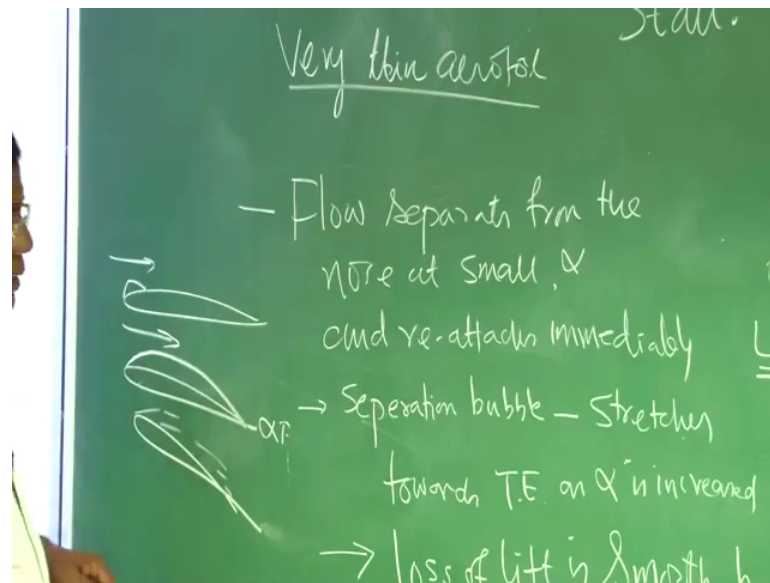 Stall.
Very thin aerofoil
- Flow separats from the
nose at small α
and re-attachs immediately
→ Seperation bubble - Stretches
towards T.E. as α is increased
→ loss of lift is smooth